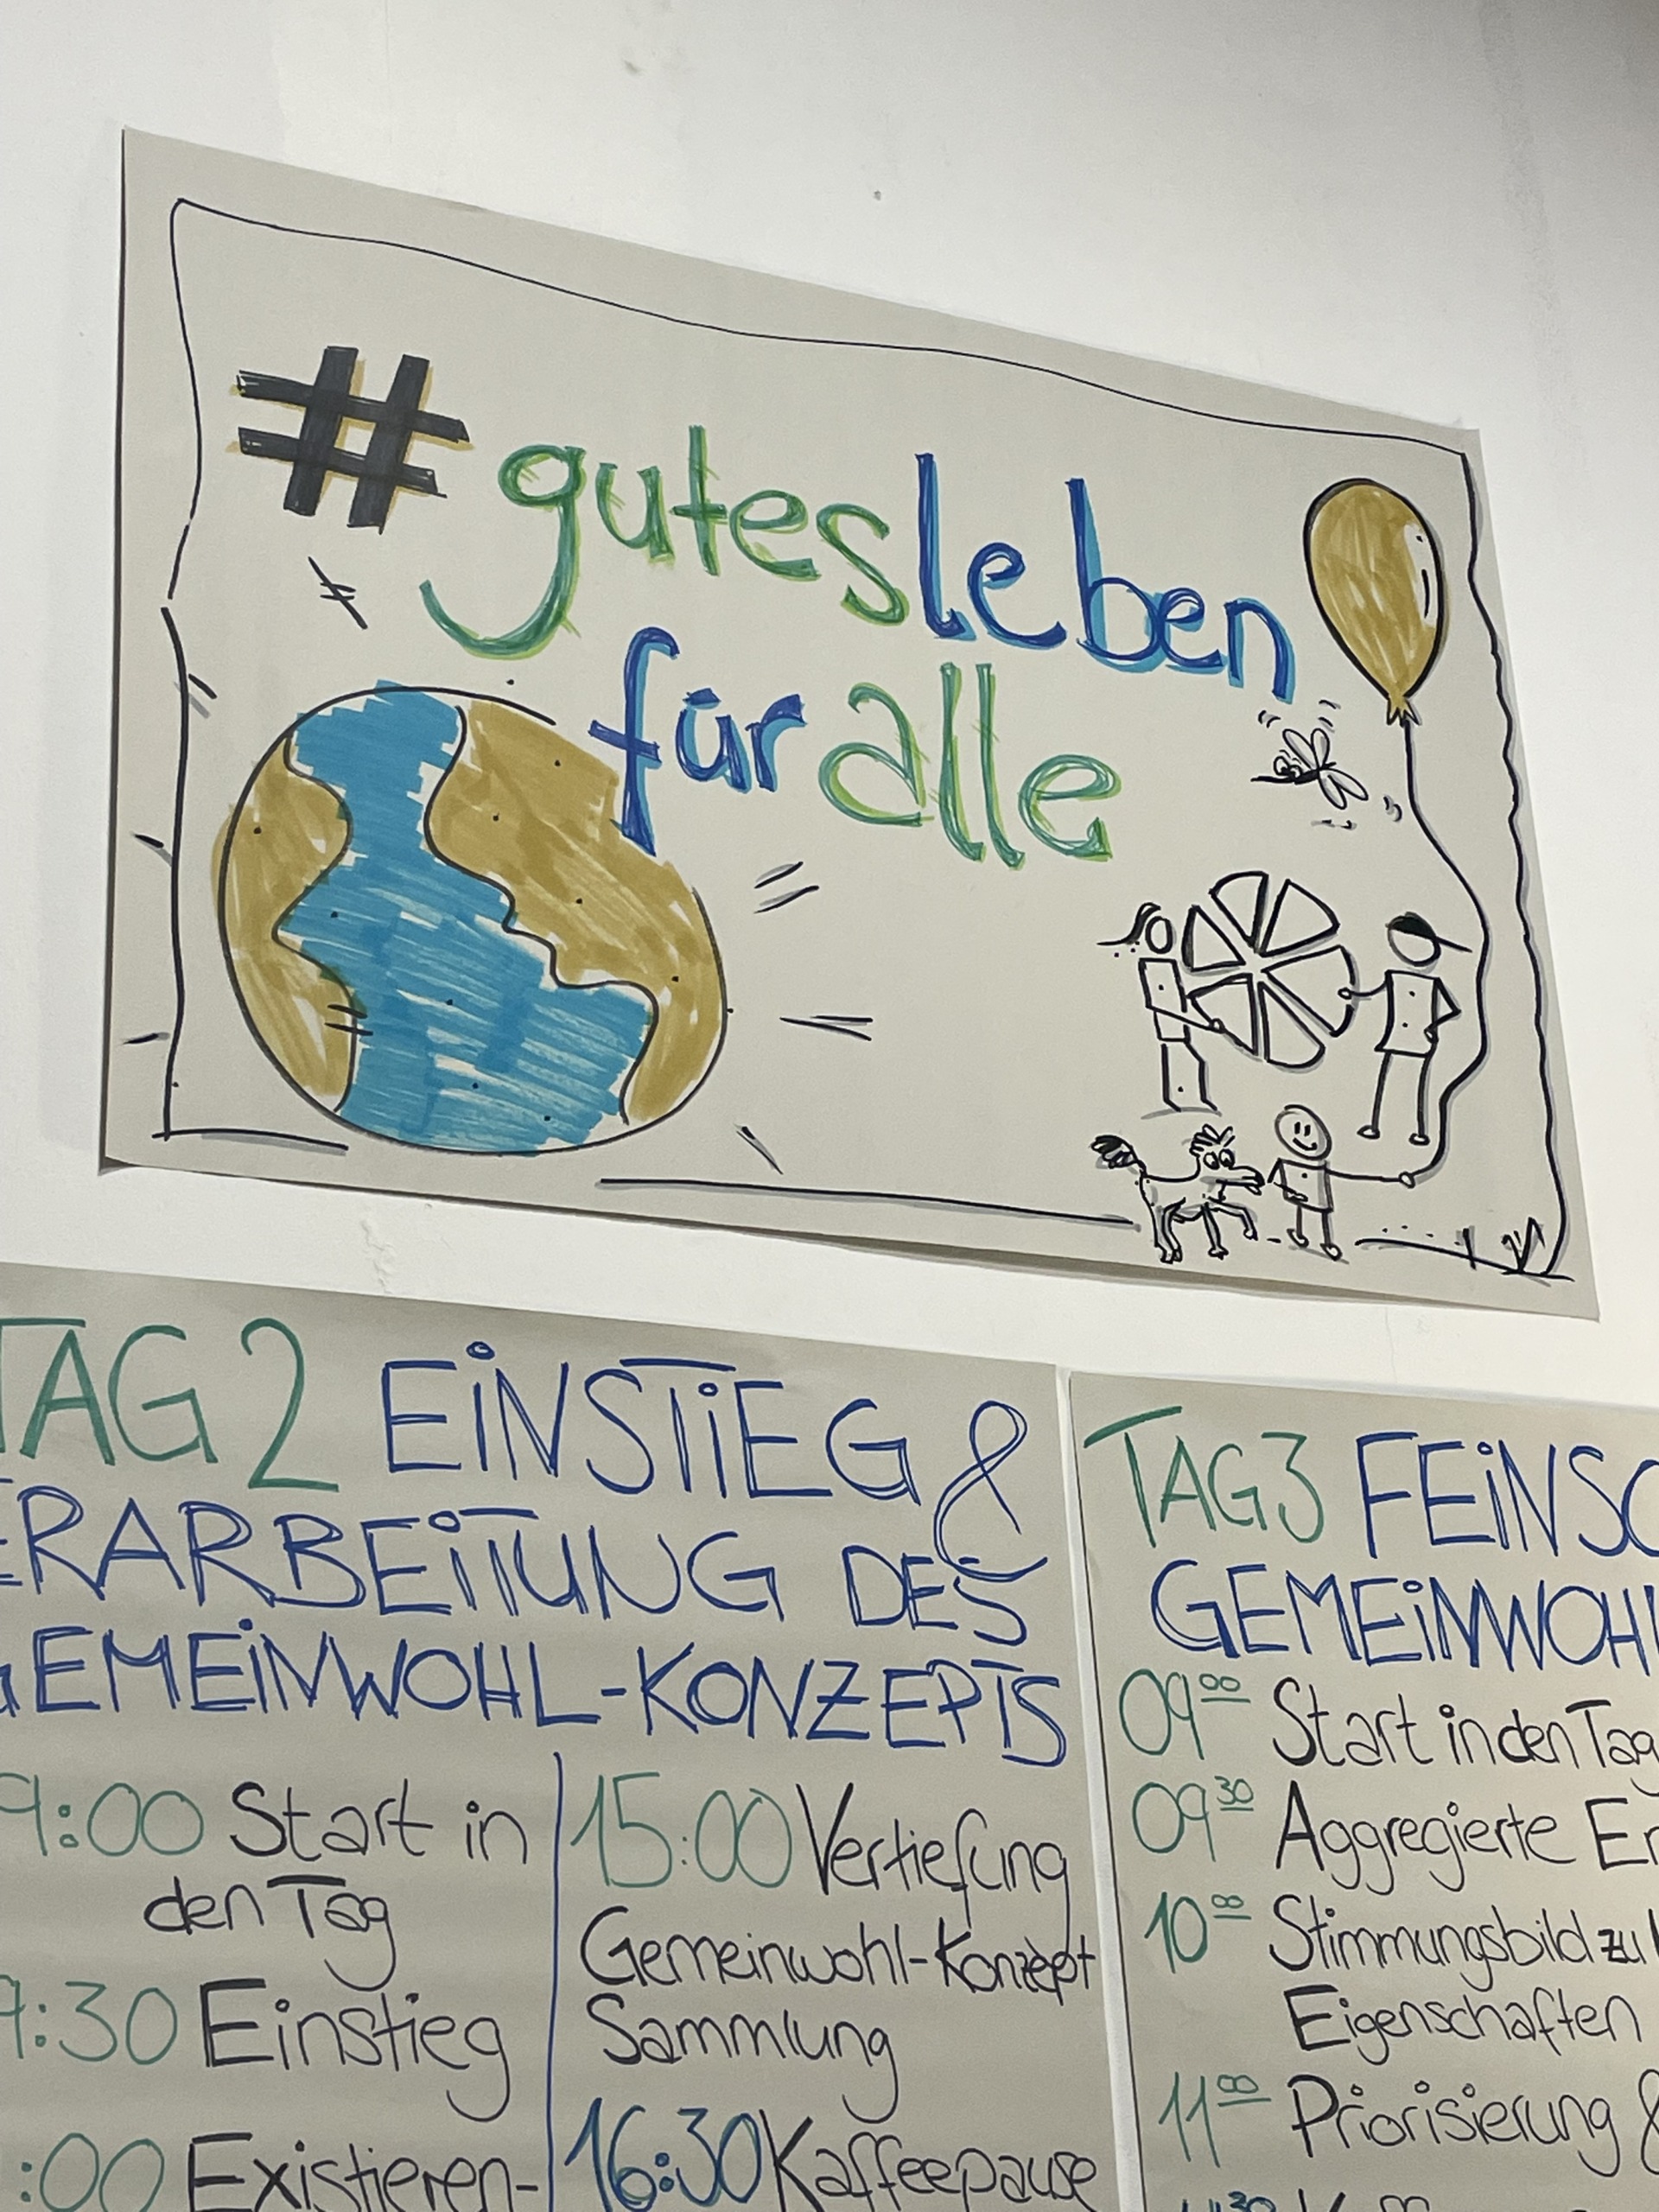 #gutesleben
für alle
TAG 2 EINSTIEG &
ERARBEITUNG DES
GEMEINWOHL-KONZEPTS
9:00 Start in
den Tag
9:30 Einstieg
:00 Existieren-
15:00 Vertiefung
Gemeinwohl-Konzept
Sammlung
16:30 Kaffeepause
TAG 3 FEINSC
GEMEINWOHL
09 00 Start in den Tag
09 30 Aggregierte Er
10 00 Stimmungsbild zu
Eigenschaften
11 00 Priorisierung &